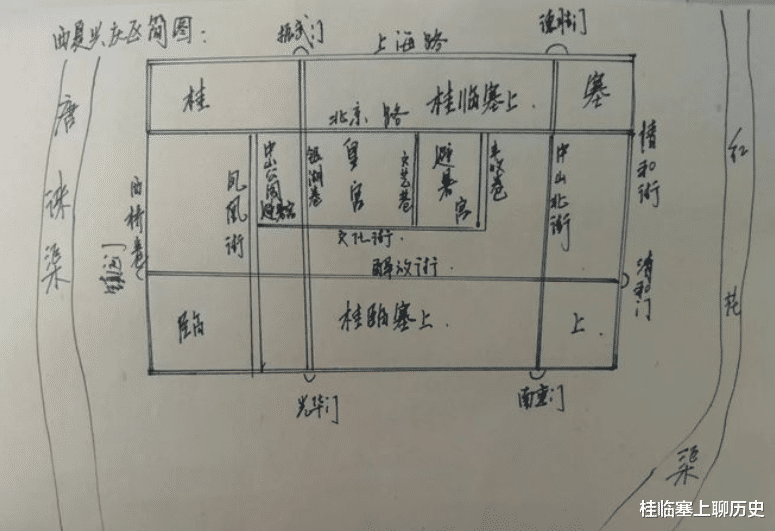 西夏兴庆区简图:
振武门
德胜门
上海路
桂
桂临塞上.
塞
北京路
唐徕渠
西桥巷
凤凰街
中山公园
银湖巷
皇宫
文艺巷
避暑宫
中山北街
清和街
红花渠
文化街.
解放街.
清和门
临
桂临塞上.
上.
光华门
南熏门
桂临塞上聊历史